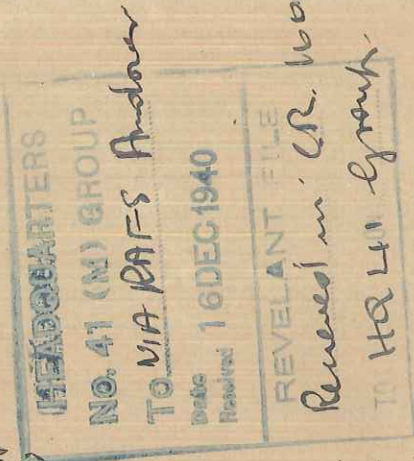 HEADQUARTERS
No. 41 (M) GROUP
TO VIA RAFS Andover
Date
Received 16 DEC 1940
REVELANT FILE
Received in CR.
TO HQ 41 Group.